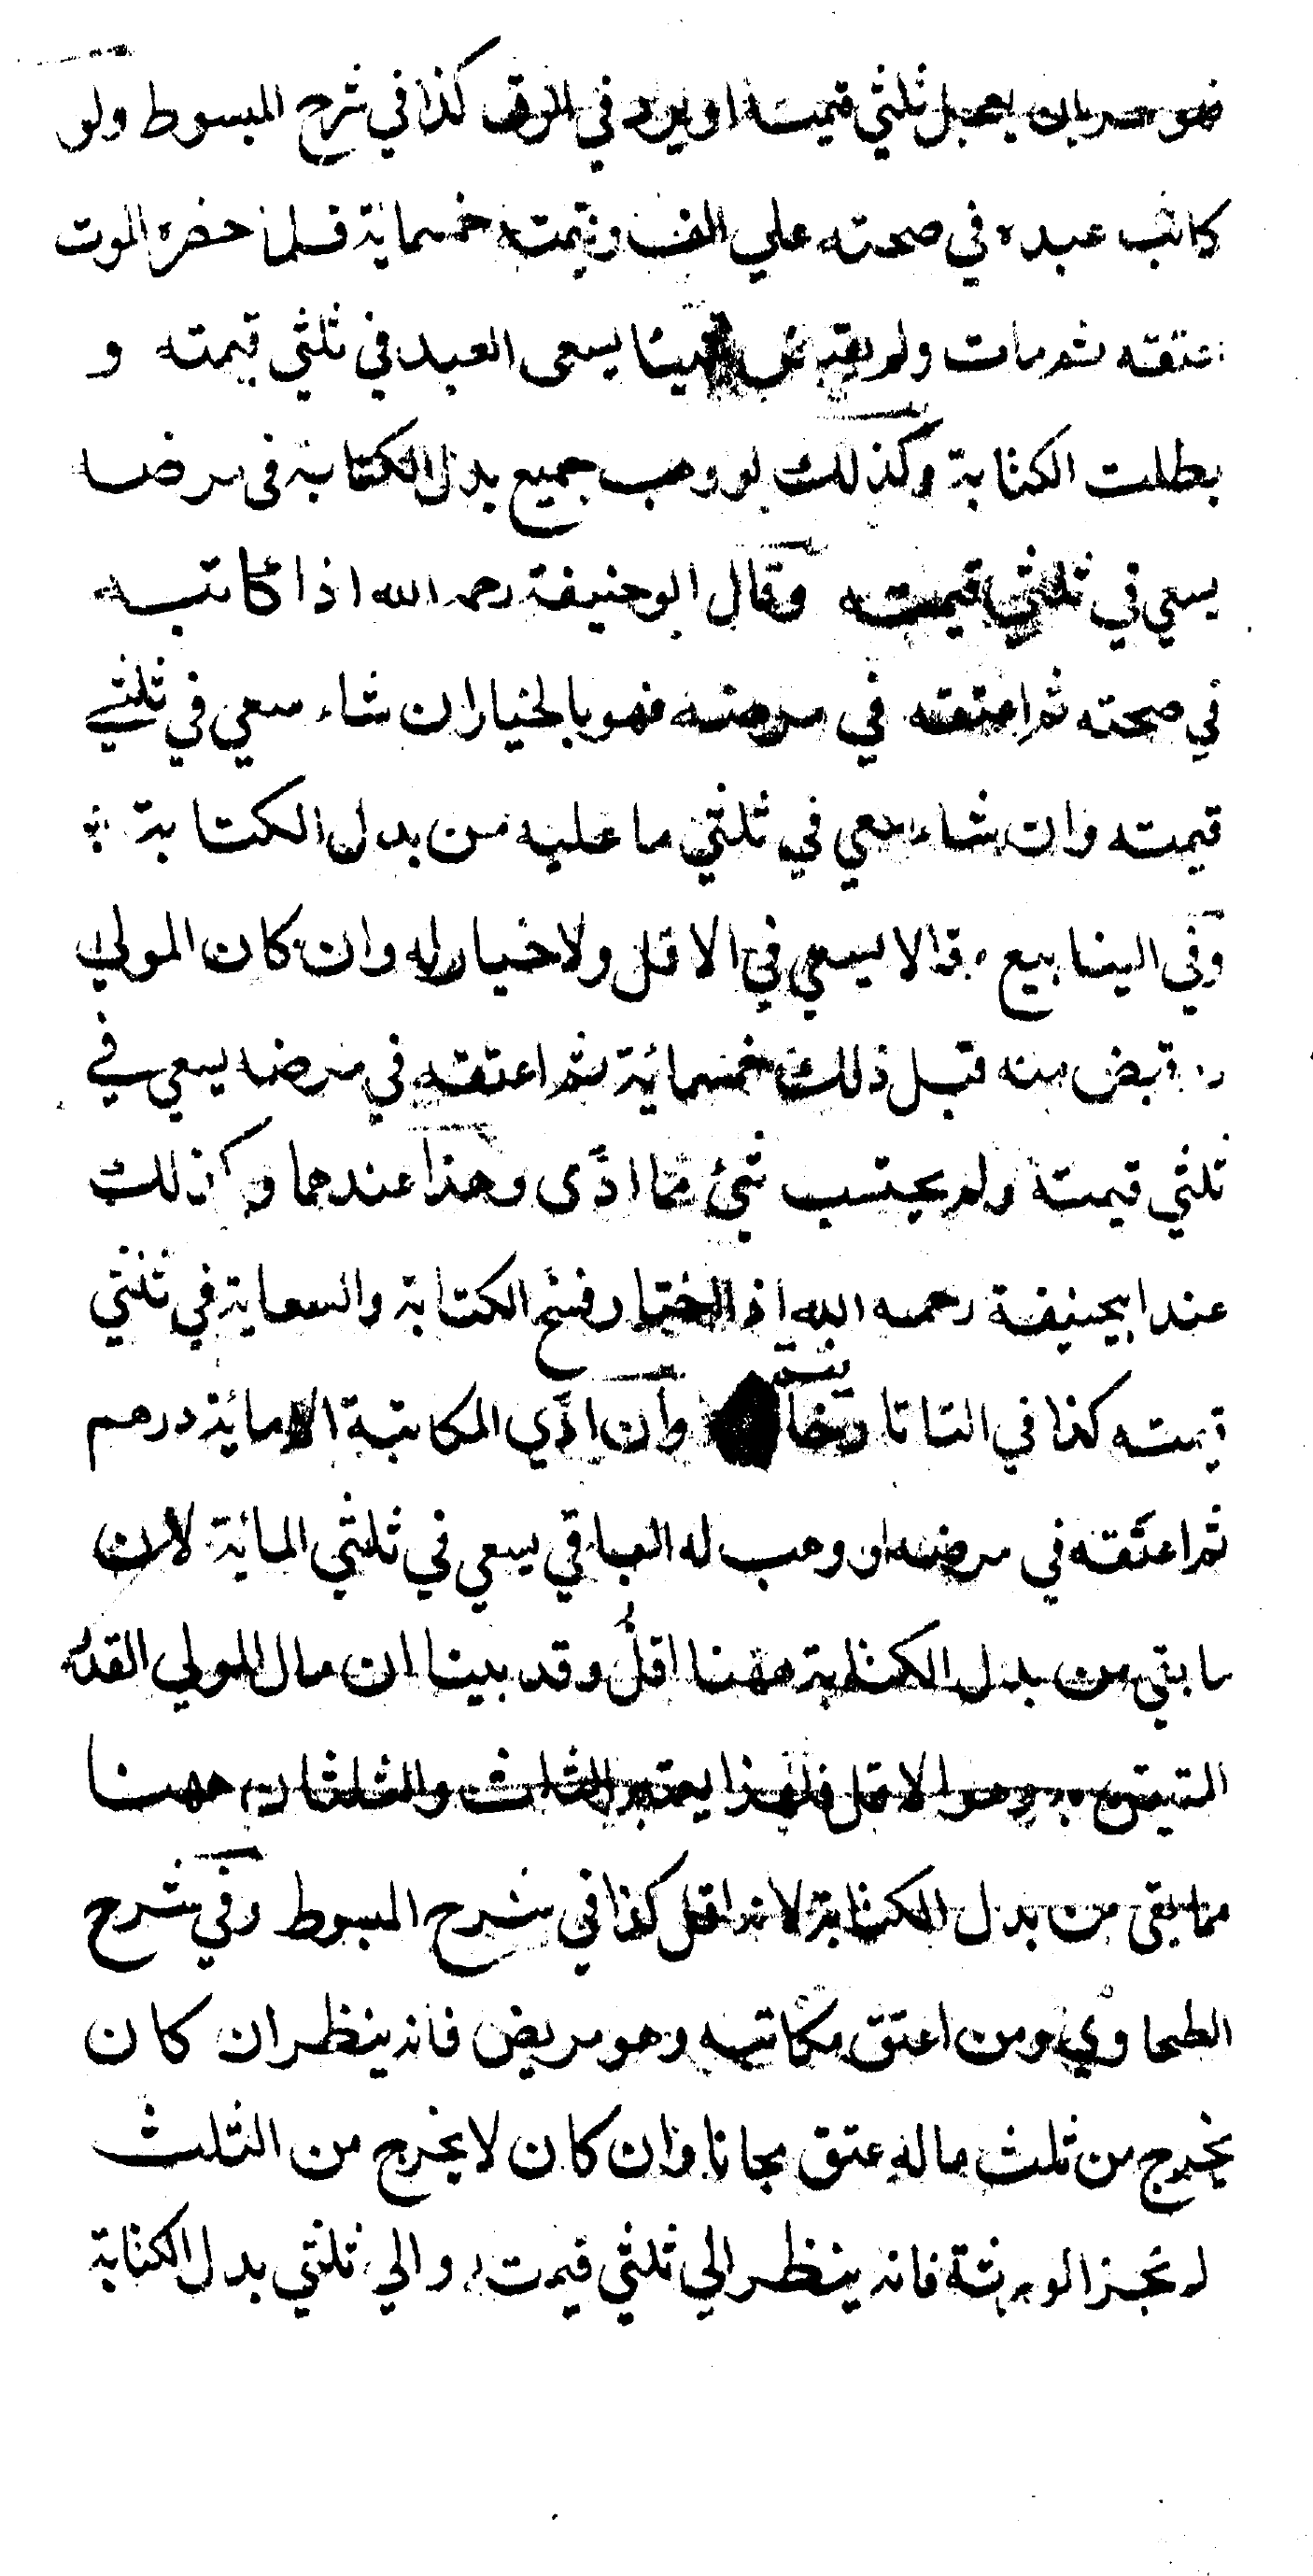 فهو حر بان يعجل ثلثي قيمته او يرد في الرق كذا في شرح المبسوط ولو
كاتب عبده في صحته علي الف وقيمته خمسماية فلما حضره الموت
عتقه ثم مات ولم يقبض شيئا يسعى العبد في ثلثي قيمته و
بطلت الكتابة وكذلك لو وهب جميع بدل الكتابة في مرضه
يسعي في ثلثي قيمته وقال ابو حنيفة رحمه الله اذا كاتبه
في صحته ثم اعتقه في مرضه فهو بالخيار ان شاء سعي في ثلثي
قيمته وان شاء سعي في ثلثي ما عليه من بدل الكتابة
وفي الينابيع وقالا يسعي في الاقل ولا خيار له وان كان المولي
قبض منه قبل ذلك خمسمائة ثم اعتقه في مرضه يسعي في
ثلثي قيمته ولم يحتسب شئ مما ادّى وهذا عندهما وكذلك
عند ابيحنيفة رحمه الله اذا اختار فسخ الكتابة والسعاية في ثلثي
قيمته كذا في التاتارخانية وان ادّي المكاتبة الا مائة درهم
ثم اعتقه في مرضه او وهب له الباقي يسعي في ثلثي المائة لان
ما بقي من بدل الكتابة ههنا اقلّ وقد بينا ان مال المولي القدر
المتيقن به وهو الاقل فلهذا يعتبر الثلث والثلثان ههنا
مما بقى من بدل الكتابة لانه اقل كذا في شرح المبسوط وفي شرح
الطحاوي ومن اعتق مكاتبه وهو مريض فانه ينظر ان كان
يخرج من ثلث ماله عتق مجانا وان كان لا يخرج من الثلث
لم تجز الورثة فانه ينظر الي ثلثي قيمته والي ثلثي بدل الكتابة